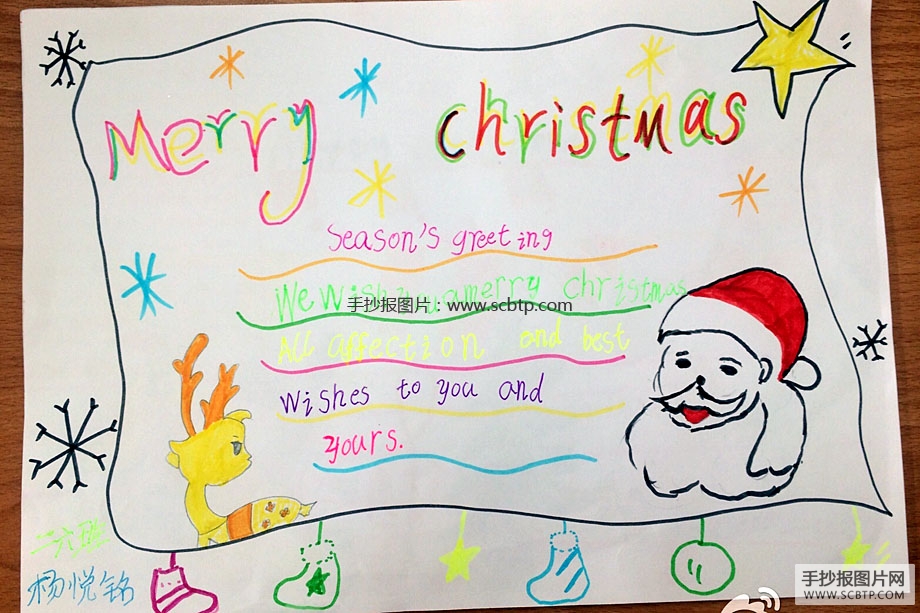 Merry christmas
Season's greeting
We wish you a merry christmas
手抄报图片：www.scbtp.com
All affection and best
wishes to you and
yours.
二六班
杨悦铭
手抄报图片网
WWW.SCBTP.COM